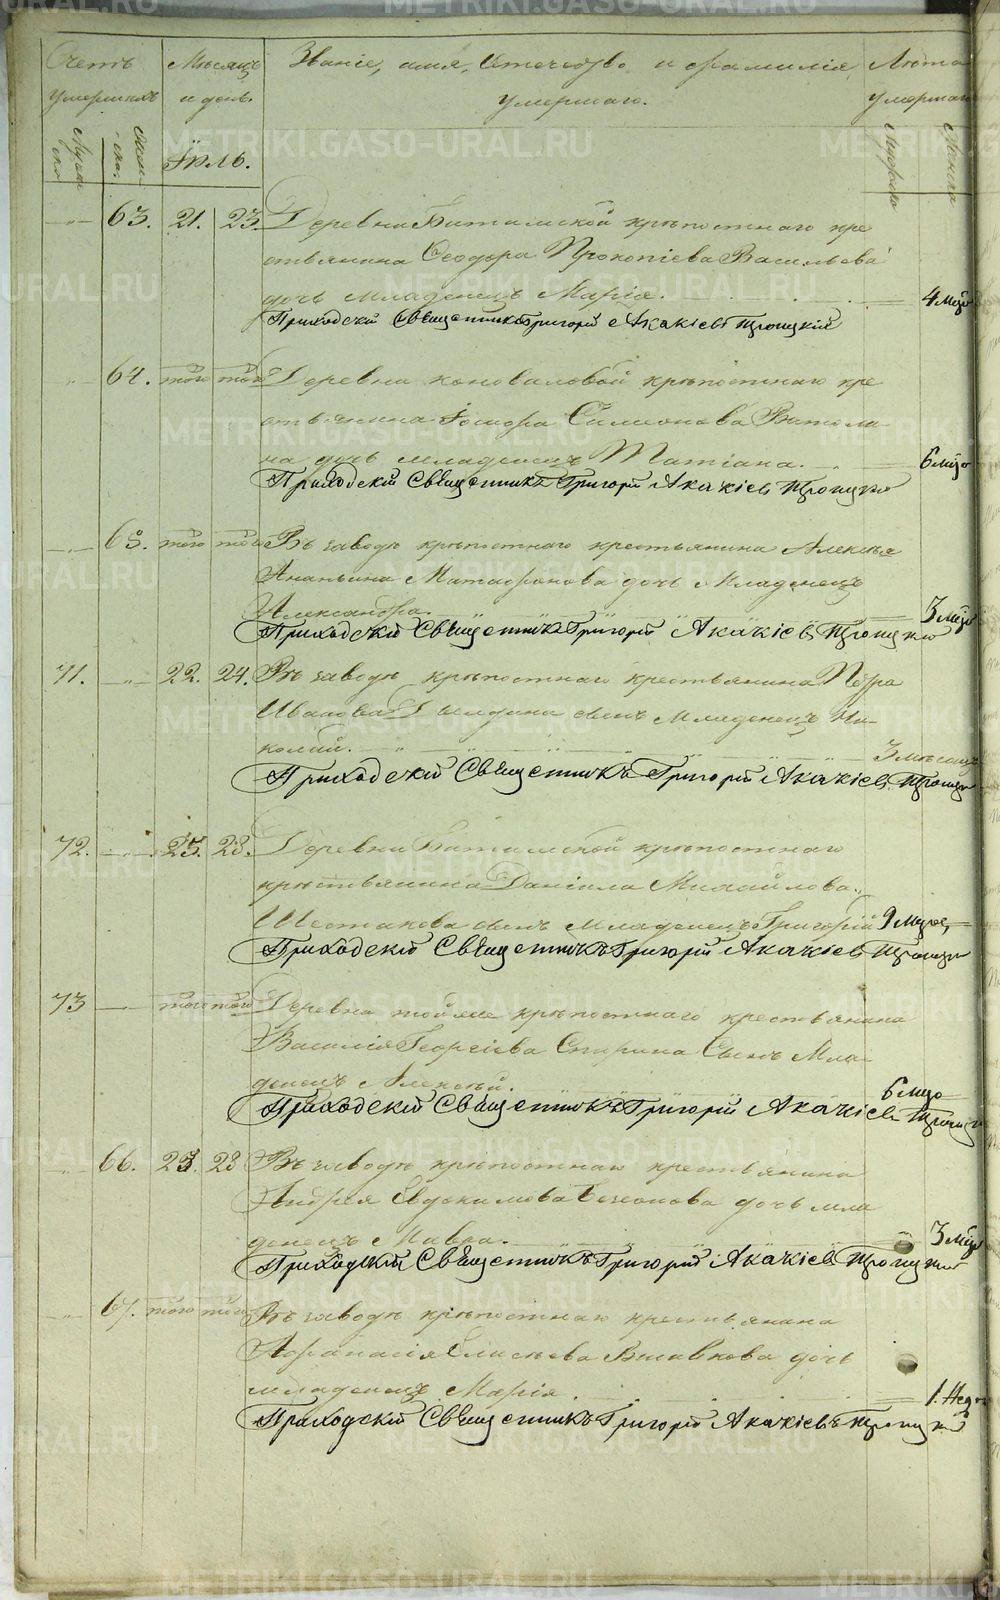 Счетъ умершихъ
Мѣсяцъ и день.
Званіе, имя, отечество и фамилія
умершаго.
Лѣта умершаго
Мужеска
Женска.
Іюль.
63. 21. 23. Деревни Битимской крѣпостнаго кре
стьянина Ѳеодора Прокопіева Васильева
дочь младенецъ Марія. 4 мѣс
Приходскій Священникъ Григорій Акакіевъ Троицкій
64. того того Деревни Коноваловой крѣпостнаго кре
стьянина Симеонова
на дочь младенецъ Татіана. 6 мѣс
Приходскій Священникъ Григорій Акакіевъ Троицкій
65. того того Въ заводѣ крѣпостнаго крестьянина Алексѣя
Ананьина Матафонова дочь младенецъ
Александра. 3 мѣс
Приходскій Священникъ Григорій Акакіевъ Троицкій
71. 22. 24. Въ заводѣ крѣпостнаго крестьянина Петра
Иванова сынъ младенецъ Ни-
колай. 3 мѣсяц
Приходскій Священникъ Григорій Акакіевъ Троицкій
72. 25. 28. Деревни Битимской крѣпостнаго
крестьянина Даніила Михайлова
Шестакова сынъ младенецъ Григорій 9 мѣс
Приходскій Священникъ Григорій Акакіевъ Троицкій
73 того того Деревни крѣпостнаго крестьянина
Василія Георгіева Спирина сынъ мла
денецъ Алексѣй. 6 мѣс
Приходскій Священникъ Григорій Акакіевъ Троицкій
66. 23 Въ заводѣ крѣпостнаго крестьянина
Андрея Евдокимова дочь мла
денецъ Мавра. 3 мѣс
Приходскій Священникъ Григорій Акакіевъ Троицкій
67. того того Въ заводѣ крѣпостнаго крестьянина
Афанасія Елисѣева дочь
младенецъ Марія. 1. Нед
Приходскій Священникъ Григорій Акакіевъ Троицкій
METRIKI.GASO-URAL.RU